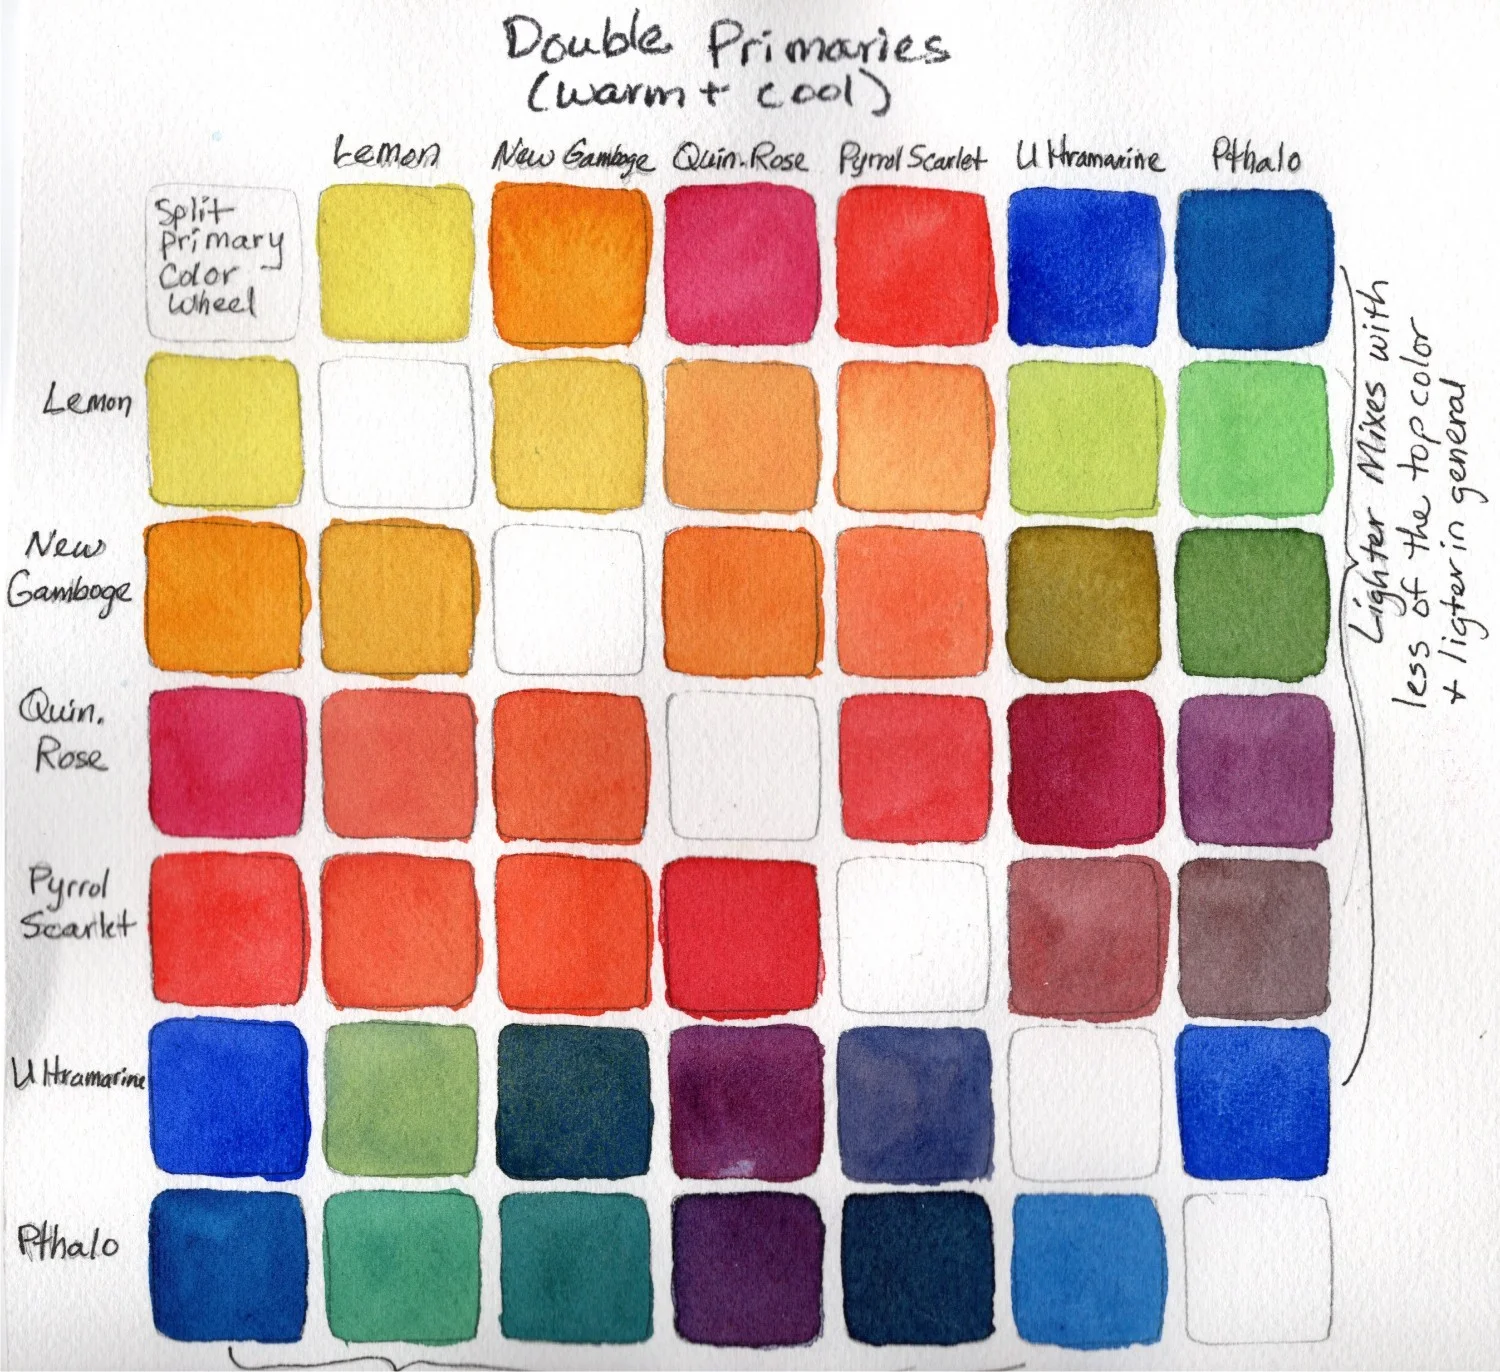 Double Primaries
(warm + cool)
Lemon
New Gamboge
Quin. Rose
Pyrrol Scarlet
Ultramarine
Pthalo
Split
Primary
Color
Wheel
Lemon
New
Gamboge
Quin.
Rose
Pyrrol
Scarlet
Ultramarine
Pthalo
Lighter Mixes with
less of the top color
+ ligter in general